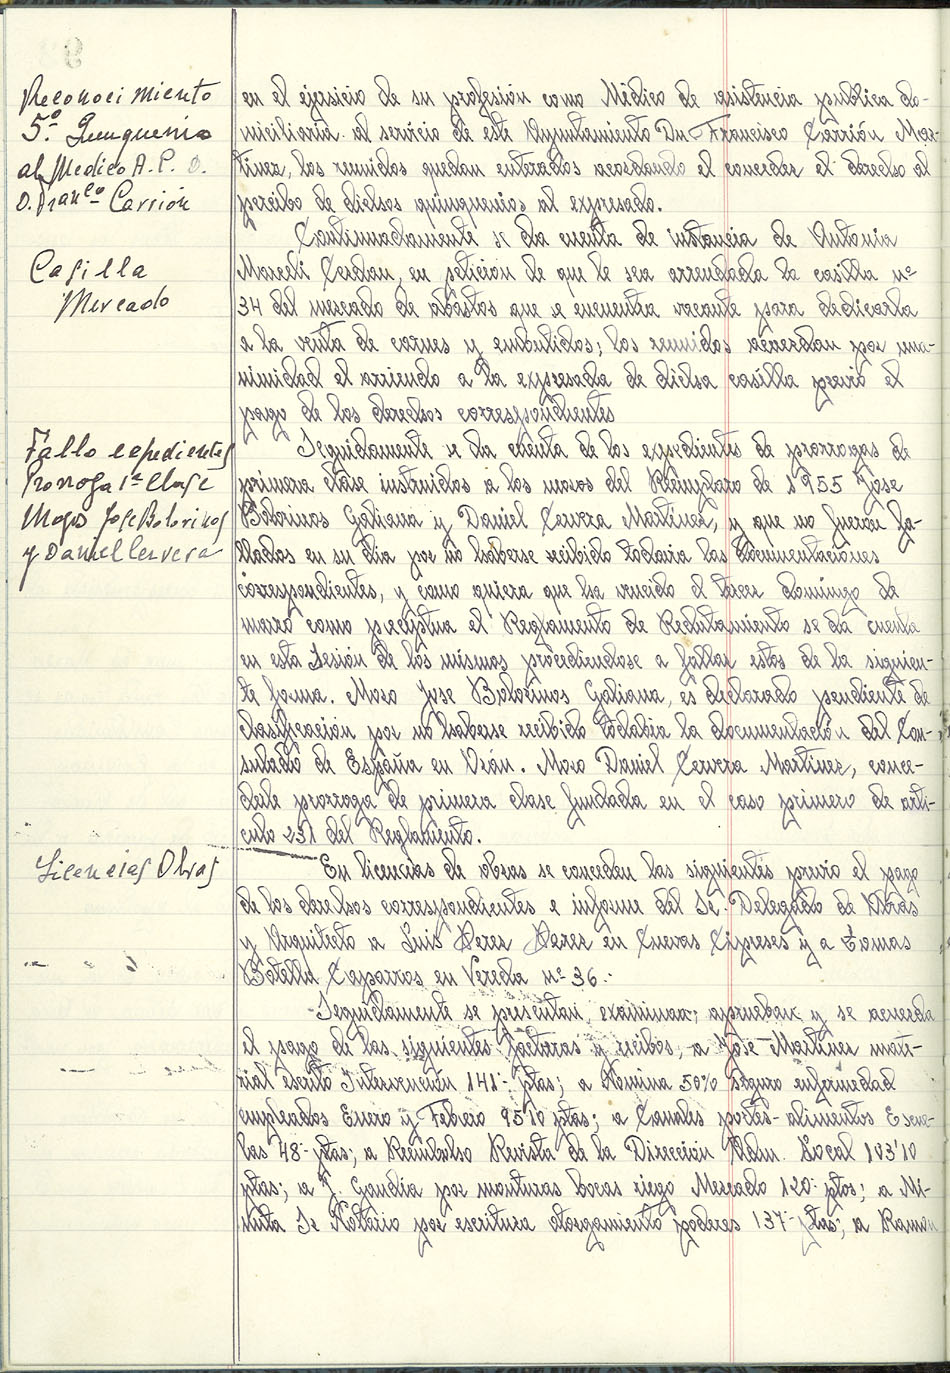 Reconocimiento
5º Quinquenio
al Medico A. P. D.
D. Franco Carrión
en el ejersicio de su profesión como Médico de asistencia publica do-
miciliaria al servicio de este Ayuntamiento Dn Francisco Carrión Mar-
tinez, los reunidos quedan enterados acordando el conceder el derecho al
percibo de dichos quinquenios al expresado.
Casilla
Mercado
Continuadamente se da cuenta de instancia de Antonia
Cerdan, en peticion de que le sea arrendada la casilla nº
34 del mercado de abastos que se encuentra vacante para dedicarla
a la venta de carnes y embutidos; los reunidos acuerdan por una-
nimidad el arriendo a la expresada de dicha casilla previo el
pago de los derechos correspondientes
Fallo expedientes
Prorroga 1ª Clase
Mozos Jose Bolorinos
y Daniel Cervera
Seguidamente se da cuenta de los expedientes de prorrogas de
primera clase instruidos a los mozos del Reemplazo de 1955 Jose
Bolorinos Galiana y Daniel Cervera Martinez, y que no fueron fa-
llados en su dia por no haberse recibido todavia las documentaciones
correspondientes, y como quiera que ha vencido el tercer domingo de
marzo como preceptua el Reglamento de Reclutamiento se da cuenta
en esta Sesión de los mismos procediendose a fallar estos de la siguien-
te forma. Mozo Jose Bolorinos Galiana, es declarado pendiente de
clasificación por no haberse recibido todabia la documentación del Con-
sulado de España en Orán. Mozo Daniel Cervera Martinez, conce-
derle prorroga de primera clase fundada en el caso primero de arti-
culo 231 del Reglamento.
Licencias Obras
En licencias de obras se conceden las siguientes previo el pago
de los derechos correspondientes e informe del Sr. Delegado de Obras
y Arquitecto a Luis Perez Perez en Cuevas Cipreses y a Tomas
Botella Caparros en Vereda nº 36.
Seguidamente se presentan, examinan, aprueban y se acuerda
el pago de las siguientes facturas y recibos, a Jose Martinez mate-
rial escrito Intervención 141 ptas; a Nomina 50% seguro enfermedad
empleados Enero y Febrero 95'10 ptas; a Canales portes alimentos Escue-
las 48 ptas; a Reembolso Revista de la Dirección Adm. Local 103'10
ptas; a J. Gandia por monturas bocas riego Mercado 120 ptas; a Mi-
nuta Sr Notario por escritura otorgamiento poderes 137 ptas; a Ramon